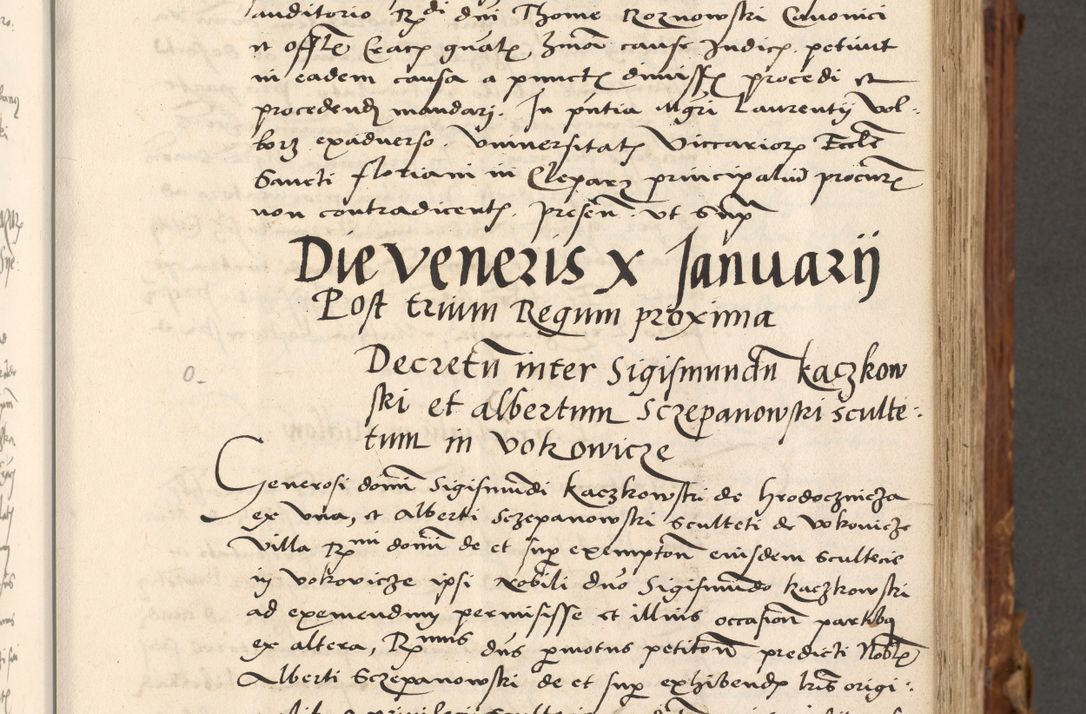 auditorio R.di dni Thome Roznowski Canonici
et offle Crac gnat, hmoi cause Judic. petiut
in eadem causa a punct dimiss procedi et
procedend mandari. In pntia Mgri Laurentij Vol-
borz exadverso. Universitat Viccarior Eccle
Sancti Floriani in Clepar principaliu procur
non contradicent. Presen. Vt Supra
Die Veneris X Januarij
Post trium Regum proxima
Decretu inter Sigismundu Kaczkow
ski et albertum Sczepanowski sculte-
tum in Vokowicze
Generosi domi Sigismundi Kaczkowski de Hrodocznicza
ex una, et Alberti Sczepanowski Sculteti de Vokovicze
Villa R.mi domi de et sup exemptoe eiusdem Scultecie
in Vokovicze ipsi Nobili dno Sigismundo Kaczkowski
ad exemendum permisisse et illius occasion partibq
ex altera, R.mus dns pmotus petiton predicti Nobil
Alberti Sczepanowski de et sup exhibend lris origi-